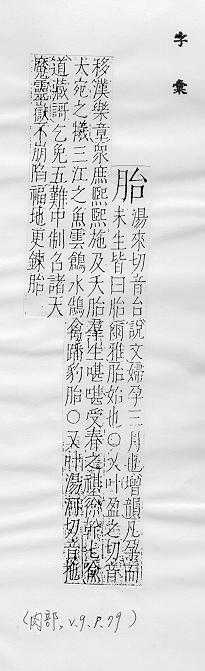 字彙
胎
湯來切音台說文婦孕三月也增韻凡孕而
未生皆曰胎爾雅胎始也○以叶盈之切音
移漢樂章衆庶熙熙施及夭胎羣生啿啿受春之祺徐幹七喩
大宛之犧三江之魚雲鶬水鵠禽蹯豹胎○又叶湯河切音拖
道藏謌乞免五難中制名諸天
魔靈嶽不崩陷福地更鍊胎
(肉部, v.9. P.79)